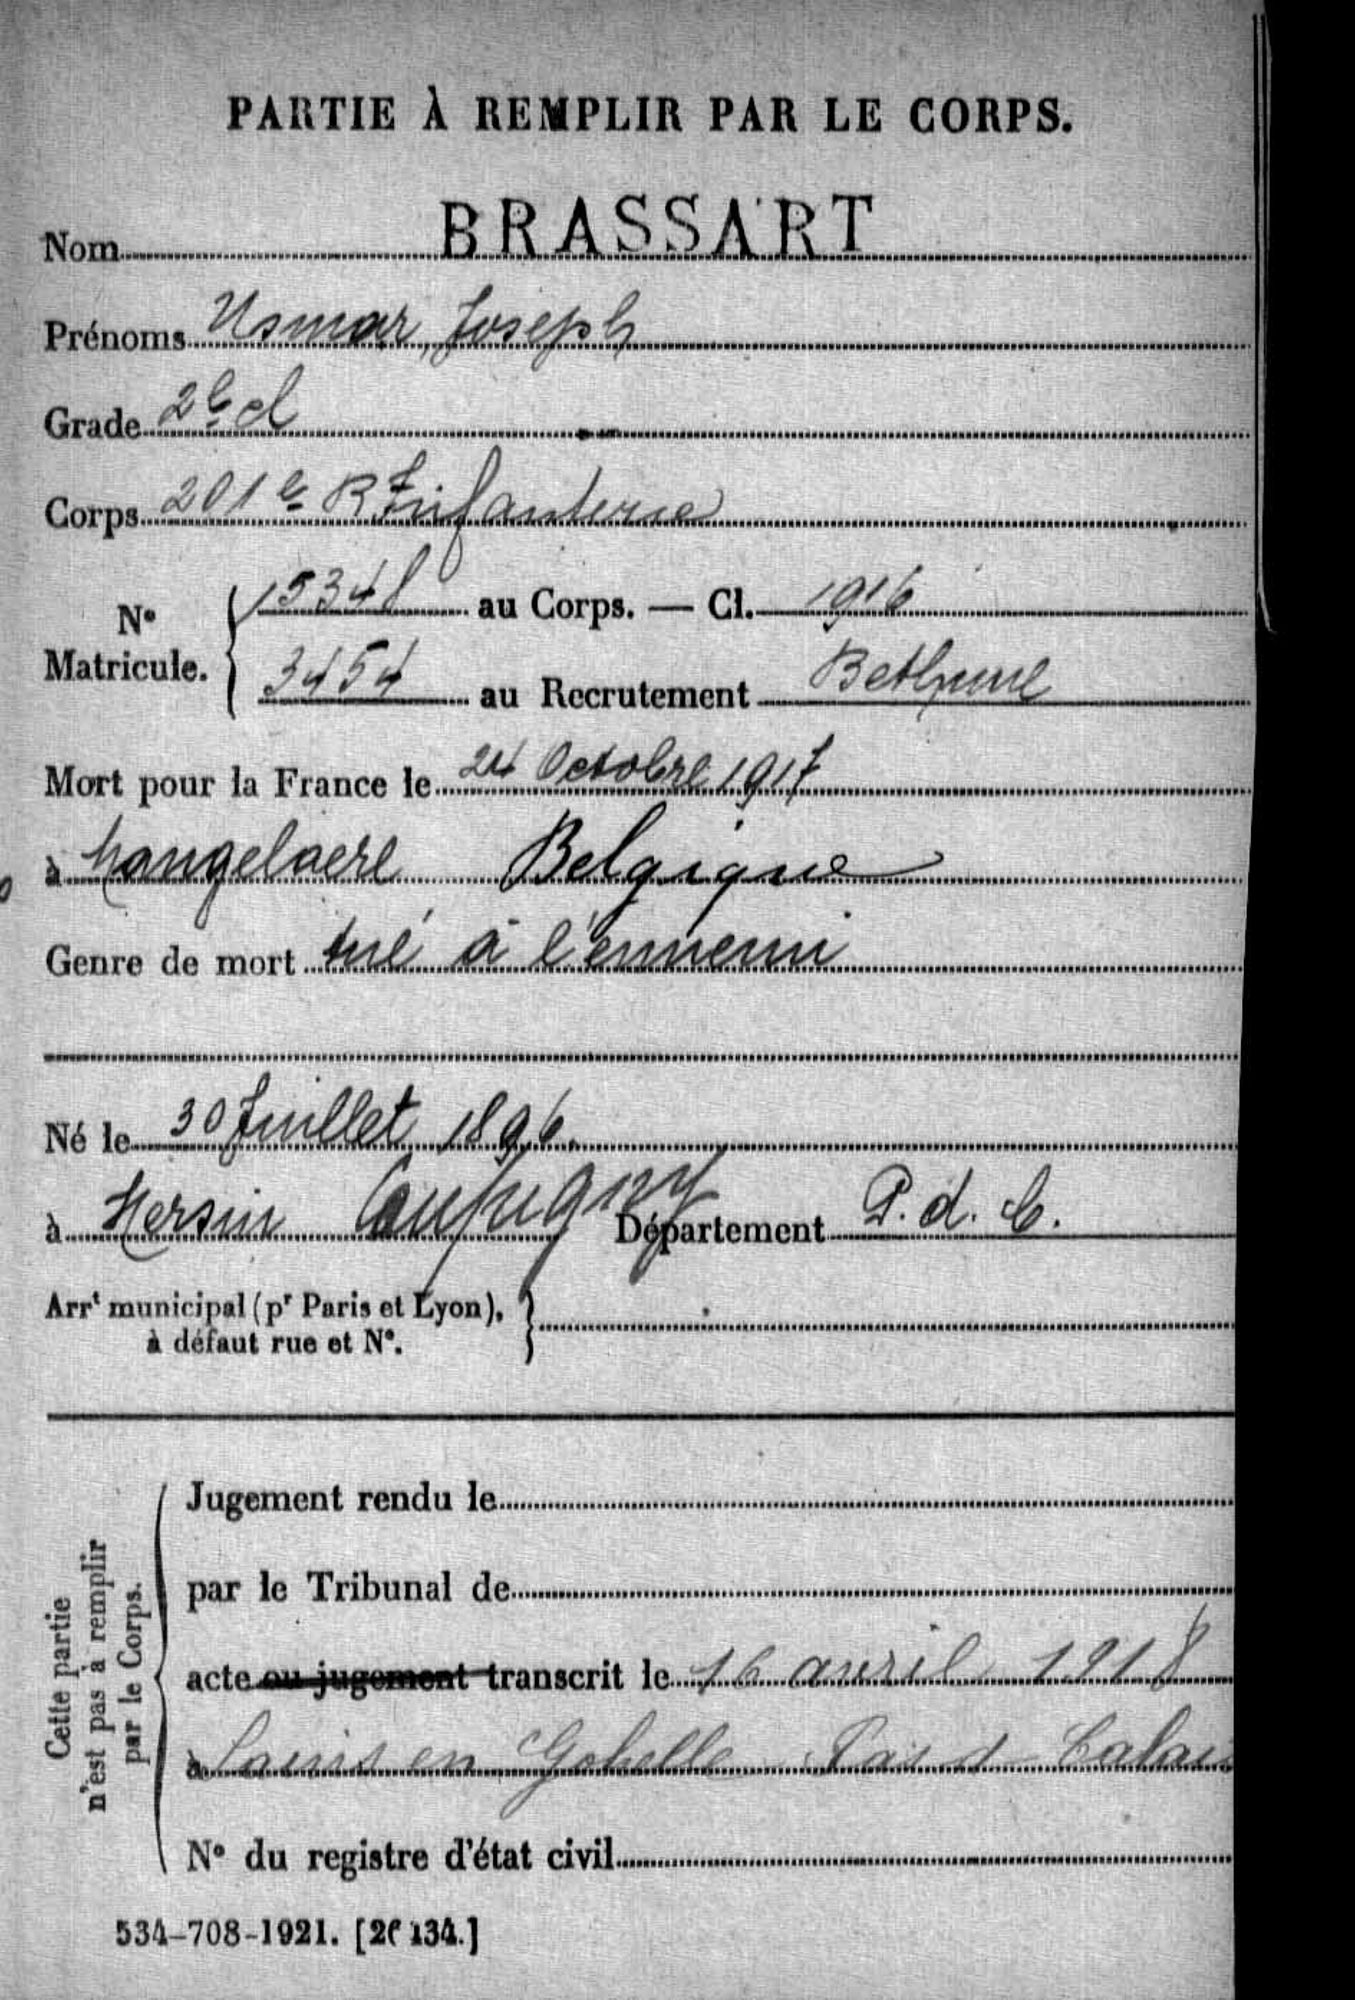 PARTIE À REMPLIR PAR LE CORPS.
Nom BRASSART
Prénoms Usmar, Joseph
Grade 2e cl
Corps 201e R Infanterie
N° Matricule. { 15348 au Corps. — Cl. 1916
3454 au Recrutement Bethune
Mort pour la France le 24 Octobre 1917
à Mangelaere Belgique
Genre de mort tué à l'ennemi
Né le 30 Juillet 1896.
à Hersin Coupigny Département P. d. C.
Arrt municipal (pr Paris et Lyon), }
à défaut rue et N°.
Cette partie
n'est pas à remplir
par le Corps.
Jugement rendu le
par le Tribunal de
acte ou jugement transcrit le 16 avril 1918
à Sains en Gohelle Pas d Calais
N° du registre d'état civil
534-708-1921. [26134.]